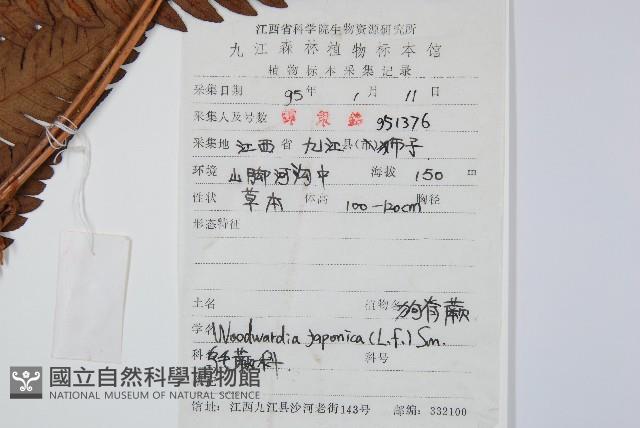 江西省科学院生物资源研究所
九江森林植物标本馆
植物标本采集记录
采集日期 95年 1月 11日
采集人及号数 谭策铭 951376
采集地 江西省 九江县(市)狮子
环境 山脚河沟中 海拔 150 m
性状 草本 体高 100-120cm 胸径
形态特征
土名 植物名 狗脊蕨
学名 Woodwardia japonica (L.f.) Sm.
科名 乌毛蕨科 科号
國立自然科學博物館
NATIONAL MUSEUM OF NATURAL SCIENCE
馆址:江西九江县沙河老街143号 邮编:332100